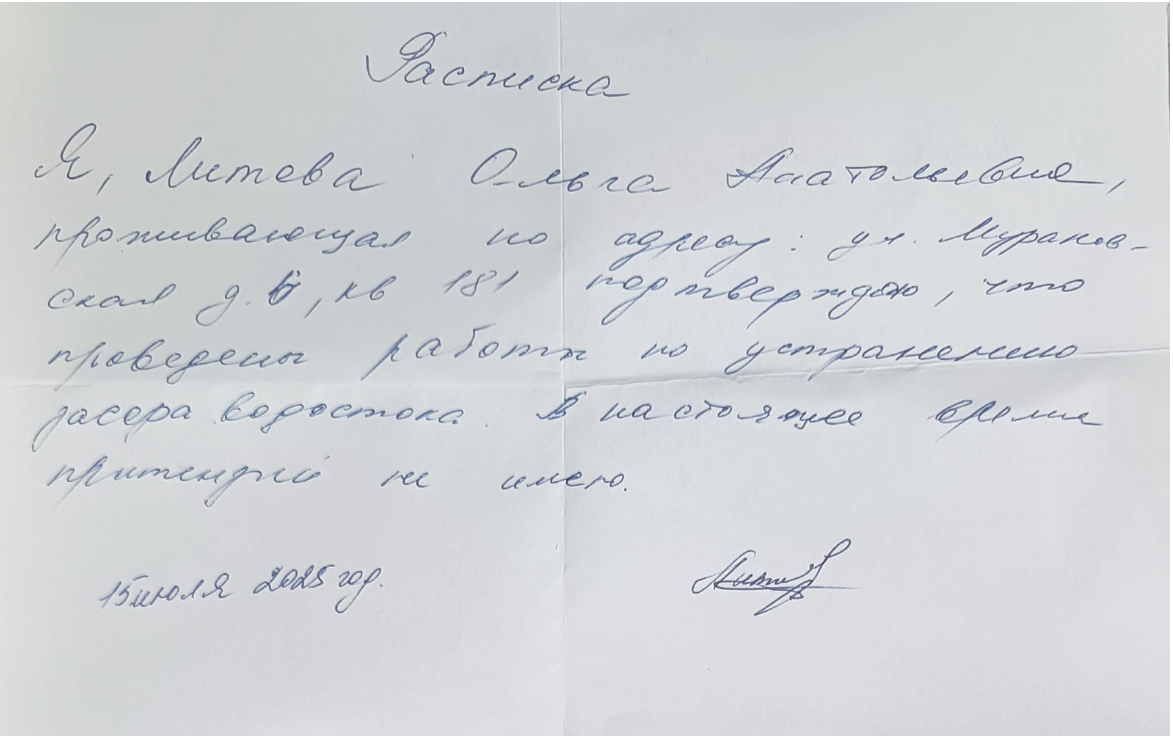 Расписка
Я, Литева Ольга Анатольевна,
проживающая по адресу: ул. Муранов-
ская д.6, кв 181 подтверждаю, что
проведены работы по устранению
засора водостока. В настоящее время
притензий не имею.
15 июля 2025 год.